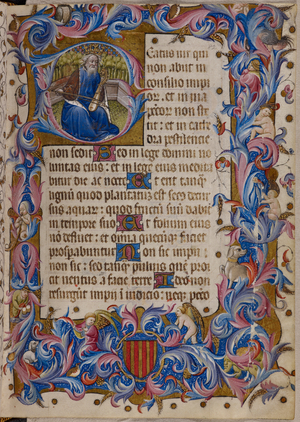 Beatus vir qui
non abiit in
consilio impi
or: et in via
pctor non ste
tit: et in cathe
dra pestilencie
non sedit Sed in lege domini vo
luntas eius: et in lege eius medita
bitur die ac nocte Et erit tanq
lignum quod plantatum est secus decur
sus aquar: quod fructum suum dabit
in tempore suo Et folium eius
no defluet: et omnia quecuq faciet
prosperabuntur Non sic impii
non sic: sed tanq pulvis que proi
cit ventus a facie terre Ideo non
resurgunt impii i iudicio: neq pecto